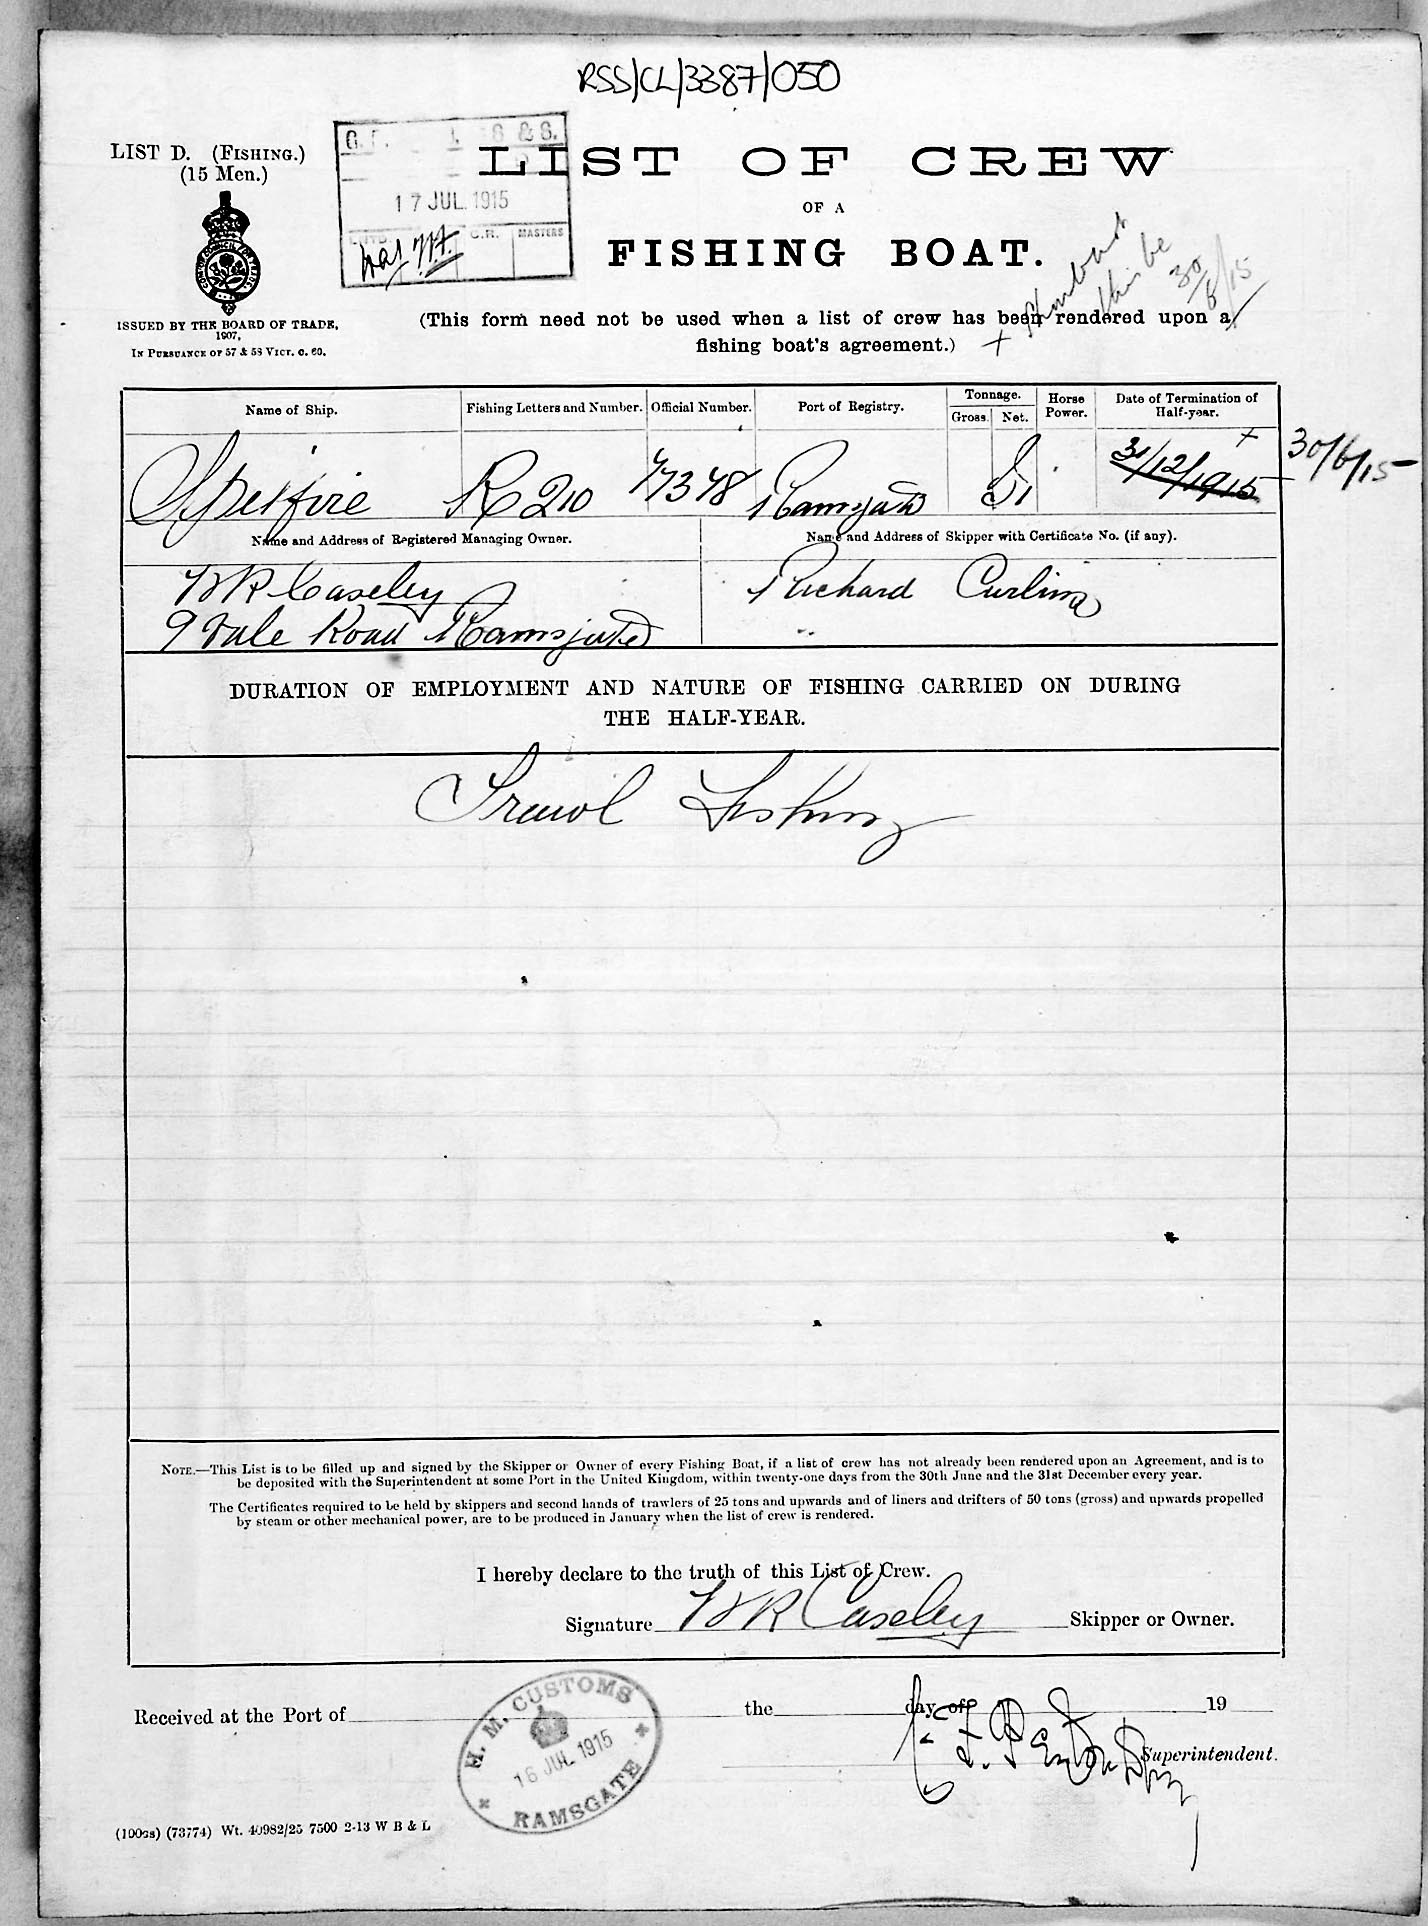 RSS/CL/3387/050
LIST D. (FISHING.)
(15 Men.)
G. & S.
17 JUL. 1915
C.R. MASTERS
LIST OF CREW
OF A
FISHING BOAT.
ISSUED BY THE BOARD OF TRADE,
1907,
IN PURSUANCE OF 57 & 58 VICT. C. 60.
(This form need not be used when a list of crew has been rendered upon a
fishing boat's agreement.)
+ this be
30/6/15
Name of Ship. Fishing Letters and Number. Official Number. Port of Registry. Tonnage. Horse Power. Date of Termination of Half-year.
Gross. Net.
Spitfire R 210 77378 Ramsgate 51 31/12/1915 + 30/6/15
Name and Address of Registered Managing Owner. Name and Address of Skipper with Certificate No. (if any).
W R Caseley Richard Curling
9 Vale Road Ramsgate
DURATION OF EMPLOYMENT AND NATURE OF FISHING CARRIED ON DURING
THE HALF-YEAR.
Trawl Fishing
NOTE.—This List is to be filled up and signed by the Skipper or Owner of every Fishing Boat, if a list of crew has not already been rendered upon an Agreement, and is to
be deposited with the Superintendent at some Port in the United Kingdom, within twenty-one days from the 30th June and the 31st December every year.
The Certificates required to be held by skippers and second hands of trawlers of 25 tons and upwards and of liners and drifters of 50 tons (gross) and upwards propelled
by steam or other mechanical power, are to be produced in January when the list of crew is rendered.
I hereby declare to the truth of this List of Crew.
Signature W R Caseley Skipper or Owner.
Received at the Port of the day of 19
H. M. CUSTOMS
16 JUL 1915
RAMSGATE
Superintendent.
(100gs) (73774) Wt. 40982/25 7500 2-13 W B & L